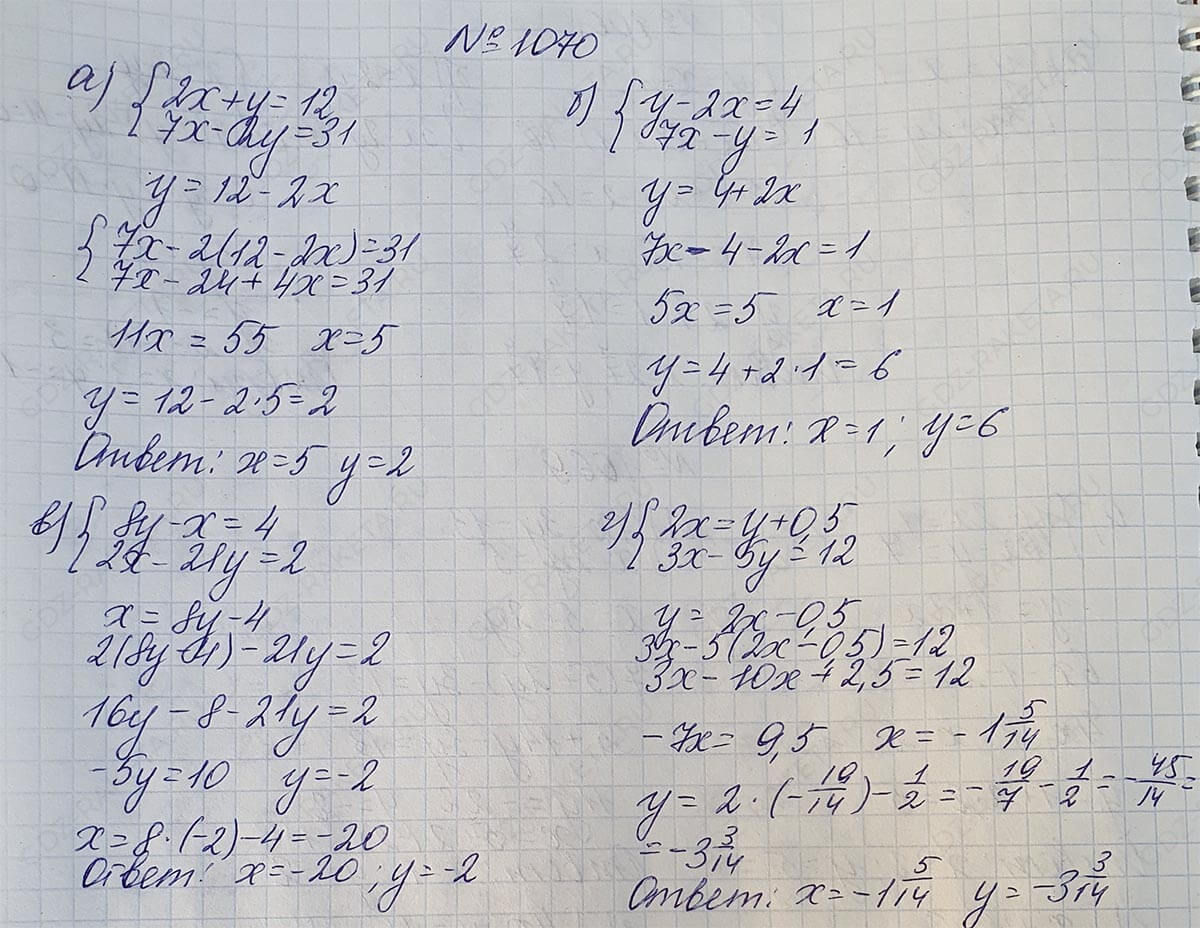 № 1070
а) { 2x+y=12
7x-2y=31
y=12-2x
{ 7x-2(12-2x)=31
7x-24+4x=31
11x=55 x=5
y=12-2·5=2
Ответ: x=5 y=2
б) { y-2x=4
7x-y=1
y=4+2x
7x-4-2x=1
5x=5 x=1
y=4+2·1=6
Ответ: x=1; y=6
в) { 8y-x=4
2x-21y=2
x=8y-4
2(8y-4)-21y=2
16y-8-21y=2
-5y=10 y=-2
x=8·(-2)-4=-20
Ответ: x=-20; y=-2
г) { 2x=y+0,5
3x-5y=12
y=2x-0,5
3x-5(2x-0,5)=12
3x-10x+2,5=12
-7x=9,5 x=-1 5/14
y=2·(-19/14)-1/2=-19/7-1/2=-45/14=
=-3 3/14
Ответ: x=-1 5/14 y=-3 3/14